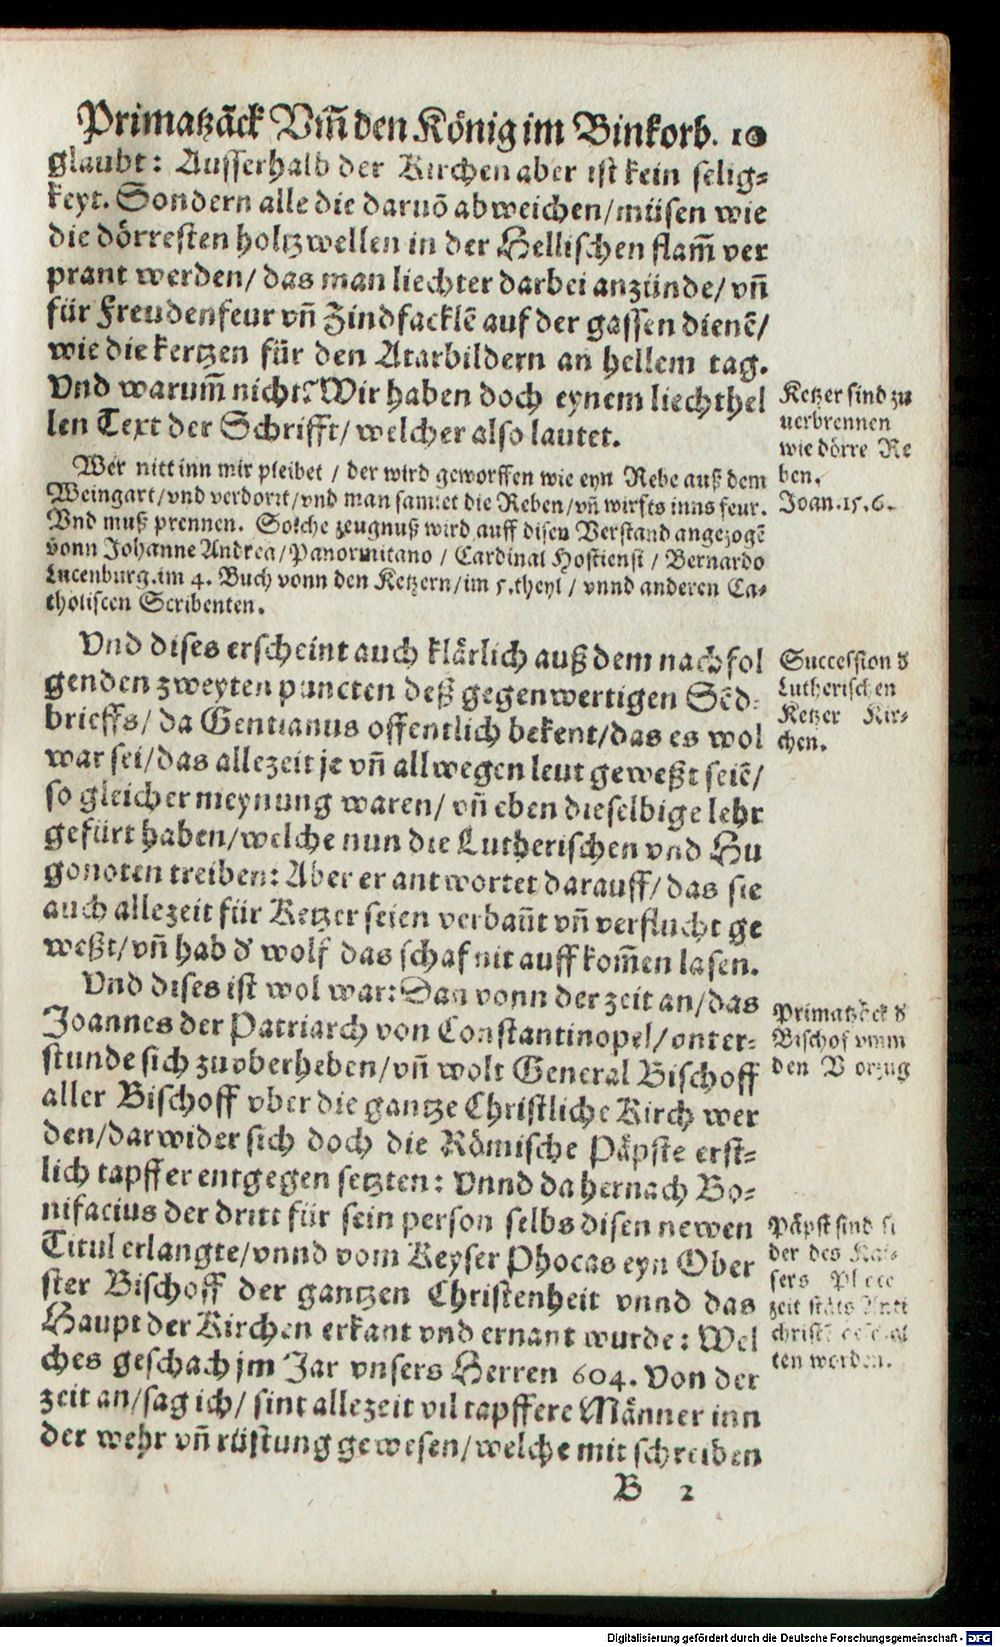 Primatzãck Vm̃ den König im Binkorb. 10
glaubt: Ausserhalb der Kirchen aber ist kein selig⸗
keyt. Sondern alle die daruõ abweichen/müsen wie
die dörresten holtzwellen in der Hellischen flam̃ ver
prant werden/ das man liechter darbei anzünde/ vñ
für Freudenfeur vñ Zindfacklẽ auf der gassen dienẽ/
wie die kertzen für den Atarbildern an hellem tag.
Vnd warum̃ nicht? Wir haben doch eynem liechthel
len Text der Schrifft/ welcher also lautet.
Ketzer sind zu
uerbrennen
wie dörre Re
ben.
Joan.15.6.
Wer nitt inn mir pleibet / der wird geworffen wie eyn Rebe auß dem
Weingart/vnd verdorrt/vnd man samlet die Reben/vñ wirfts inns feur.
Vnd muß prennen. Solche zeugnuß wird auff disen Verstand angezogẽ
vonn Johanne Andrea/Panormitano / Cardinal Hostiensi / Bernardo
Lucenburg.im 4. Buch vonn den Ketzern/im 5.theyl / vnnd anderen Ca⸗
tholiscen Scribenten.
Vnd dises erscheint auch klärlich auß dem nachfol
genden zweyten puncten deß gegenwertigen Sẽd⸗
brieffs/ da Gentianus offentlich bekent/das es wol
war sei/das allezeit je vñ allwegen leut geweßt seiẽ/
so gleicher meynung waren/ vñ eben dieselbige lehr
gefürt haben/welche nun die Lutherischen vnd Hu
gonoten treiben: Aber er antwortet darauff/das sie
auch allezeit für Ketzer seien verbañt vñ verflucht ge
weßt/vñ hab d' wolf das schaf nit auffkom̃en lasen.
Succession d'
Lutherischen
Ketzer Kir⸗
chen.
Vnd dises ist wol war: Dan vonn der zeit an/das
Joannes der Patriarch von Constantinopel/onter⸗
stunde sich zuoberheben/vñ wolt General Bischoff
aller Bischoff vber die gantze Christliche Kirch wer
den/darwider sich doch die Römische Päpste erst⸗
lich tapffer entgegen setzten: Vnnd da hernach Bo⸗
nifacius der dritt für sein person selbs disen newen
Titul erlangte/vnnd vom Keyser Phocas eyn Ober
ster Bischoff der gantzen Christenheit vnnd das
Haupt der Kirchen erkant vnd ernant wurde: Wel
ches geschach jm Jar vnsers Herren 604. Von der
zeit an/sag ich/ sint allezeit vil tapffere Männer inn
der wehr vñ rüstung gewesen/welche mit schreiben
Primatzöck d'
Bischof vmm
den Vorzug
Päpst sind si
der des Kai⸗
sers
zeit stäts Anti
ten worden.
B 2
Digitalisierung gefördert durch die Deutsche Forschungsgemeinschaft - DFG